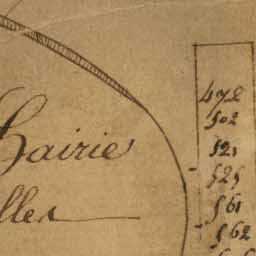 Mairie
lles
472
502
521
525
561
562